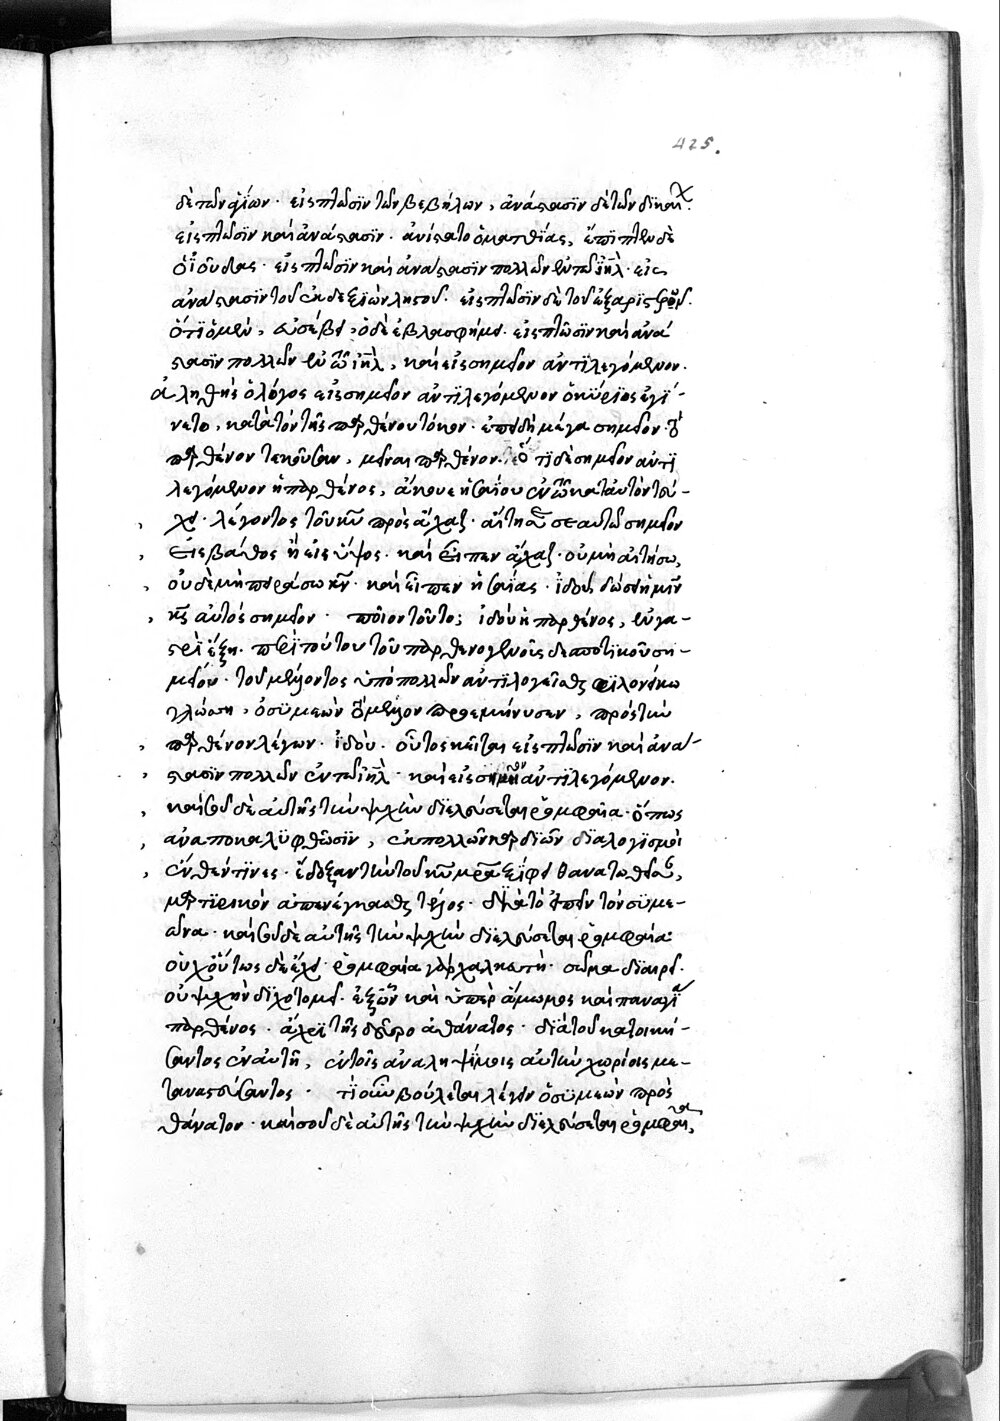 425.
δὲ τῶν ἁγίων· εἰς πτῶσϊν τῶν βεβήλων, ἀνάστασϊν δὲ τῶν δϊκαί
εἰς πτῶσϊν καὶ ἀνάστασϊν· ἀνίστατο ὁ ματθίας, ἔπϊπτεν δὲ
ὁ ἰούδας· εἰς πτῶσϊν καὶ ἀνάστασϊν πολλῶν ἐν τῶ ἰηλ· εἰς
ἀνάστασϊν τοῦ ἐκ δεξϊῶν ληστοῦ· εἰς πτῶσϊν δὲ τοῦ ἐξ αρϊστερῶν.
ὅτϊ ὁ μὲν, εὐσέβει, ὁ δὲ ἐβλασφήμει· εἰς πτῶσϊν καὶ ἀνά
στασϊν πολλῶν ἐν τῶ ἰηλ, καὶ εἰς σημεῖον ἀντϊλεγόμενον.
ἀληθὴς ὁ λόγος εἰς σημεῖον ἀντϊλεγόμενον ὁ κύριος ἐγί-
νετο, κατὰ τὸν τῆς παρθένου τόκον· ἐπειδὴ μέγα σημεῖον
παρθένον τεκοῦσαν, μεῖναι παρθένον· τϊ δὲ σημεῖον ἀντϊ
λεγόμενον ἡ παρθένος, ἄκουε ἡσαΐου ἐν τῶ κατ αὐτὸν τεύ-
χει· λέγοντος τοῦ κυ πρὸς ἄχαζ· αἴτησαι σεαυτῶ σημεῖον
εἰς βάθος ἢ εἰς ὕψος· καὶ εἶπεν ἄχαζ· οὐ μὴ αἰτήσω,
οὐδὲ μὴ πειράσω κν· καὶ εἶπεν ἡσαΐας· ἰδοὺ δώσει ἡμῖν
κς αὐτὸς σημεῖον· ποῖον τοῦτο; ἰδοὺ ἡ παρθένος, ἐν γα-
στρὶ ἕξει· περὶ τούτου τοῦ παρθενογενοῦς δεσποτικοῦ ση-
μείου· τοῦ μέλλοντος ὑπὸ πολλῶν ἀντϊλογεῖσθαι φϊλονείκω
γλώσση, ὁ συμεὼν ὃ μέλλον προεμήνυσεν, πρὸς τὴν
παρθένον λέγων· ἰδοὺ· οὗτος κεῖται εἰς πτῶσϊν καὶ ἀνά-
στασϊν πολλῶν ἐν τῶ ἰηλ· καὶ εἰς σημεῖον ἀντϊλεγόμενον.
καὶ σοῦ δὲ αὐτῆς τὴν ψυχὴν διελεύσεται ῥομφαία· ὅπως
ἀναποκαλϋφθῶσϊν, ἐκ πολλῶν καρδϊῶν δϊαλογϊσμοὶ
ἐνθέν τϊνες· ἔδοξαν τὴν τοῦ κυ μρα ξίφει θανατωθεῖσαν,
μαρτϊρικὸν ἀπενέγκασθαι τέλος· δϊὰ τὸ εἰπεῖν τὸν συμε-
ῶνα· καὶ σοῦ δὲ αὐτῆς τὴν ψυχὴν δϊελεύσεται ῥομφαία·
οὐχ οὕτως δὲ ἔχει· ῥομφαία γὰρ χαλκευτὴ· σῶμα δϊαιρεῖ·
οὐ ψυχὴν δϊχοτομεῖ· ἐξ ὧν καὶ ὑπὲρ ἄμωμος καὶ παναγία
παρθένος· ἄχρϊ τῆς δεῦρο ἀθάνατος· δϊὰ τοῦ κατοικί-
σαντος ἐν αὐτῆ, ἐν τοῖς ἀναληψίμοις αὐτὴν χωρίοις με-
ταναστεύσαντος· τϊ οὖν βούλεται λέγειν ὁ συμεὼν πρὸς
θάνατον· καὶ σοῦ δὲ αὐτῆς τὴν ψυχὴν δϊελεύσεται ῥομφαία,